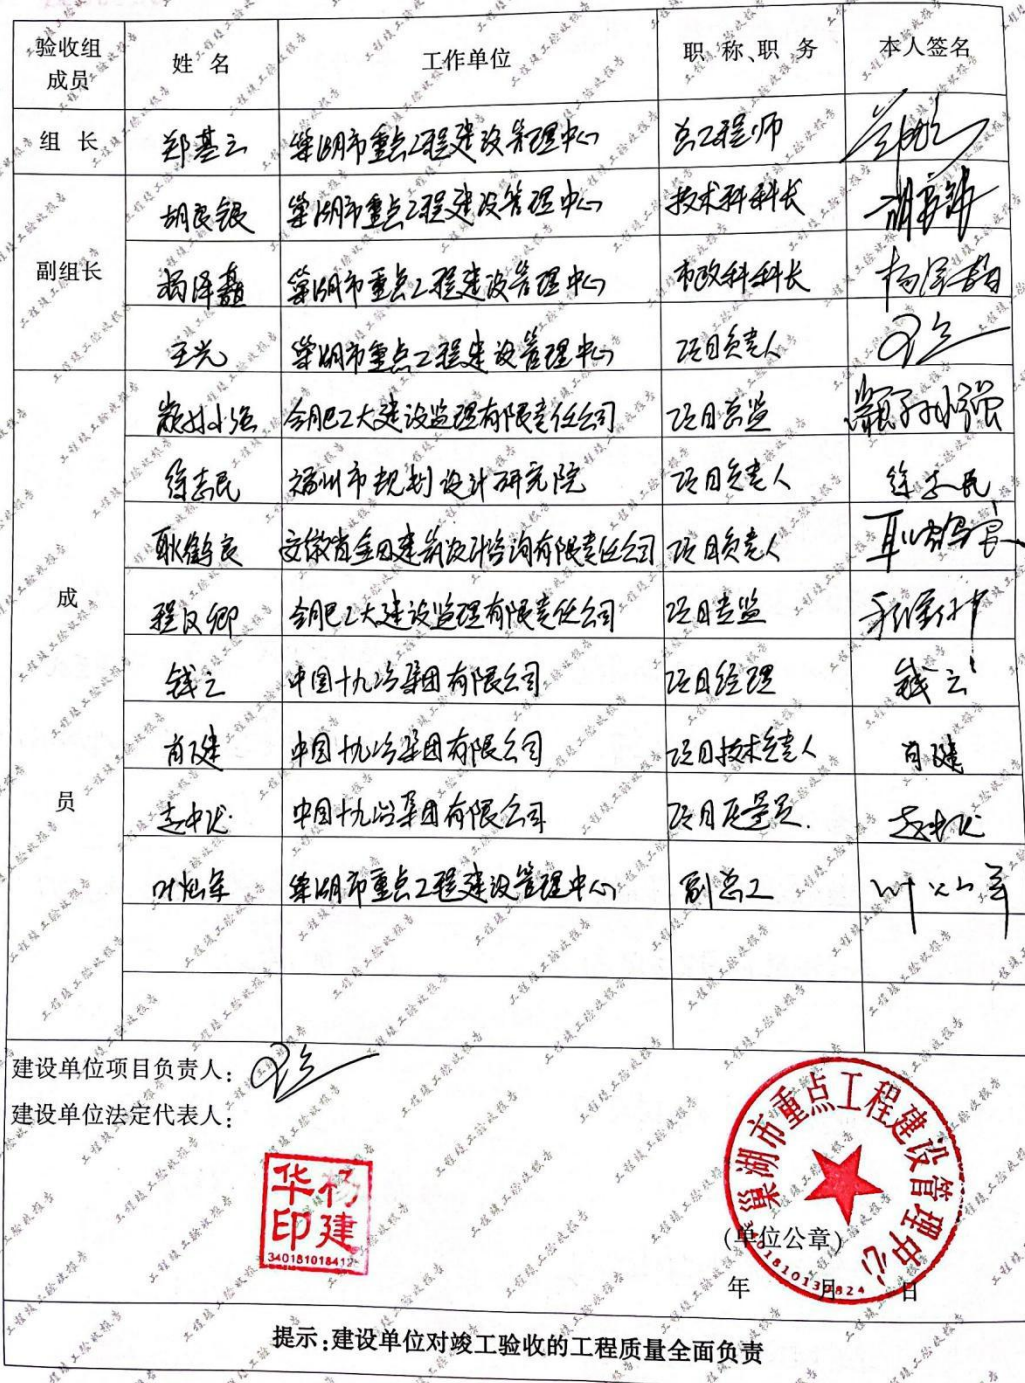 验收组成员 姓名 工作单位 职称、职务 本人签名
组长 郑基云 巢湖市重点工程建设管理中心 总工程师
副组长 胡良银 巢湖市重点工程建设管理中心 技术科科长
杨泽 巢湖市重点工程建设管理中心 市政科科长
王兴 巢湖市重点工程建设管理中心 项目负责人
成员 小强 合肥工大建设监理有限责任公司 项目总监
徐志民 福州市规划设计研究院 项目负责人 徐志民
耿鹤良 安徽省金田建筑设计咨询有限责任公司 项目负责人 耿鹤良
程汉卿 合肥工大建设监理有限责任公司 项目专监
钱云 中国十九冶集团有限公司 项目经理 钱云
肖建 中国十九冶集团有限公司 项目技术负责人 肖建
中国十九冶集团有限公司 项目质量员
叶灿军 巢湖市重点工程建设管理中心 副总工 叶灿军
建设单位项目负责人:
建设单位法定代表人:
杨建华印
3401810184
巢湖市重点工程建设管理中心
(单位公章)
年 月 日
提示:建设单位对竣工验收的工程质量全面负责
工程竣工验收报告